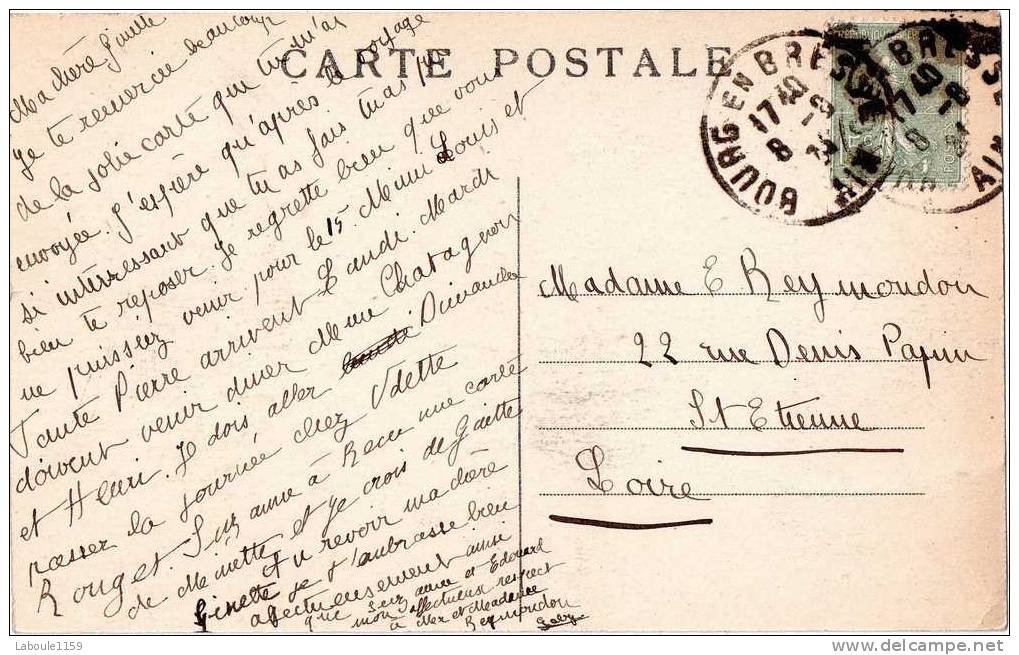 CARTE POSTALE
Ma chère Ginette
Je te remercie beaucoup
de la jolie carte que tu m'as
envoyée. J'espère qu'après le voyage
si intéressant que tu as fais tu as pu
bien te réposer. Je regrette bien que vous
ne puissiez venir pour le 15. Mimi Louis et
Tante Pierre arrivent Lundi. Mardi
doivent venir diner Mme Chatagnon
et Henri. Je dois aller Dimanche
passer la journée chez Odette
Rouget. Suzanne à Reçu une carte
de Minette et je crois de Gaitte
Au revoir ma chère
Ginette je t'embrasse bien
affectueusement ainsi
que Suzanne et Edouard
mon affectueux respect
à Mr et Madame
Reymondon
Gaby
BOURG EN BRESSE
17 40
8
AIN
BRESSE
17
8
AIN
POSTES
Madame E Reymondon
22 rue Denis Papin
St Etienne
Loire
Laboule1159
delcampe.net